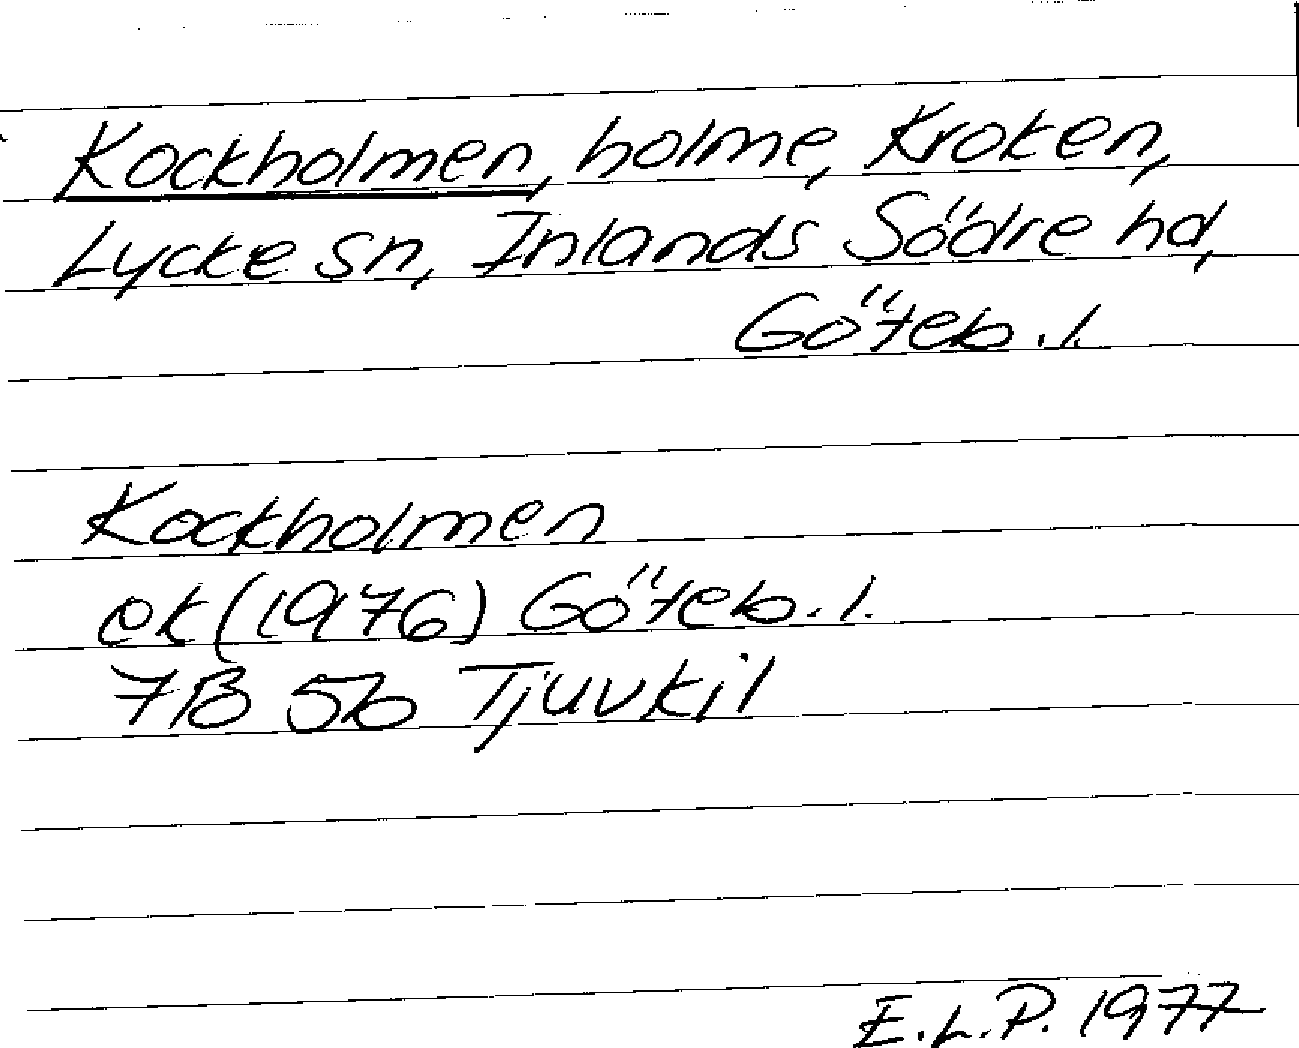 Kockholmen, holme, Kroken,
Lycke sn, Inlands Södre hd,
Göteb. l.
Kockholmen
ek (1976) Göteb. l.
7B 5b Tjuvkil
E.L.P. 1977